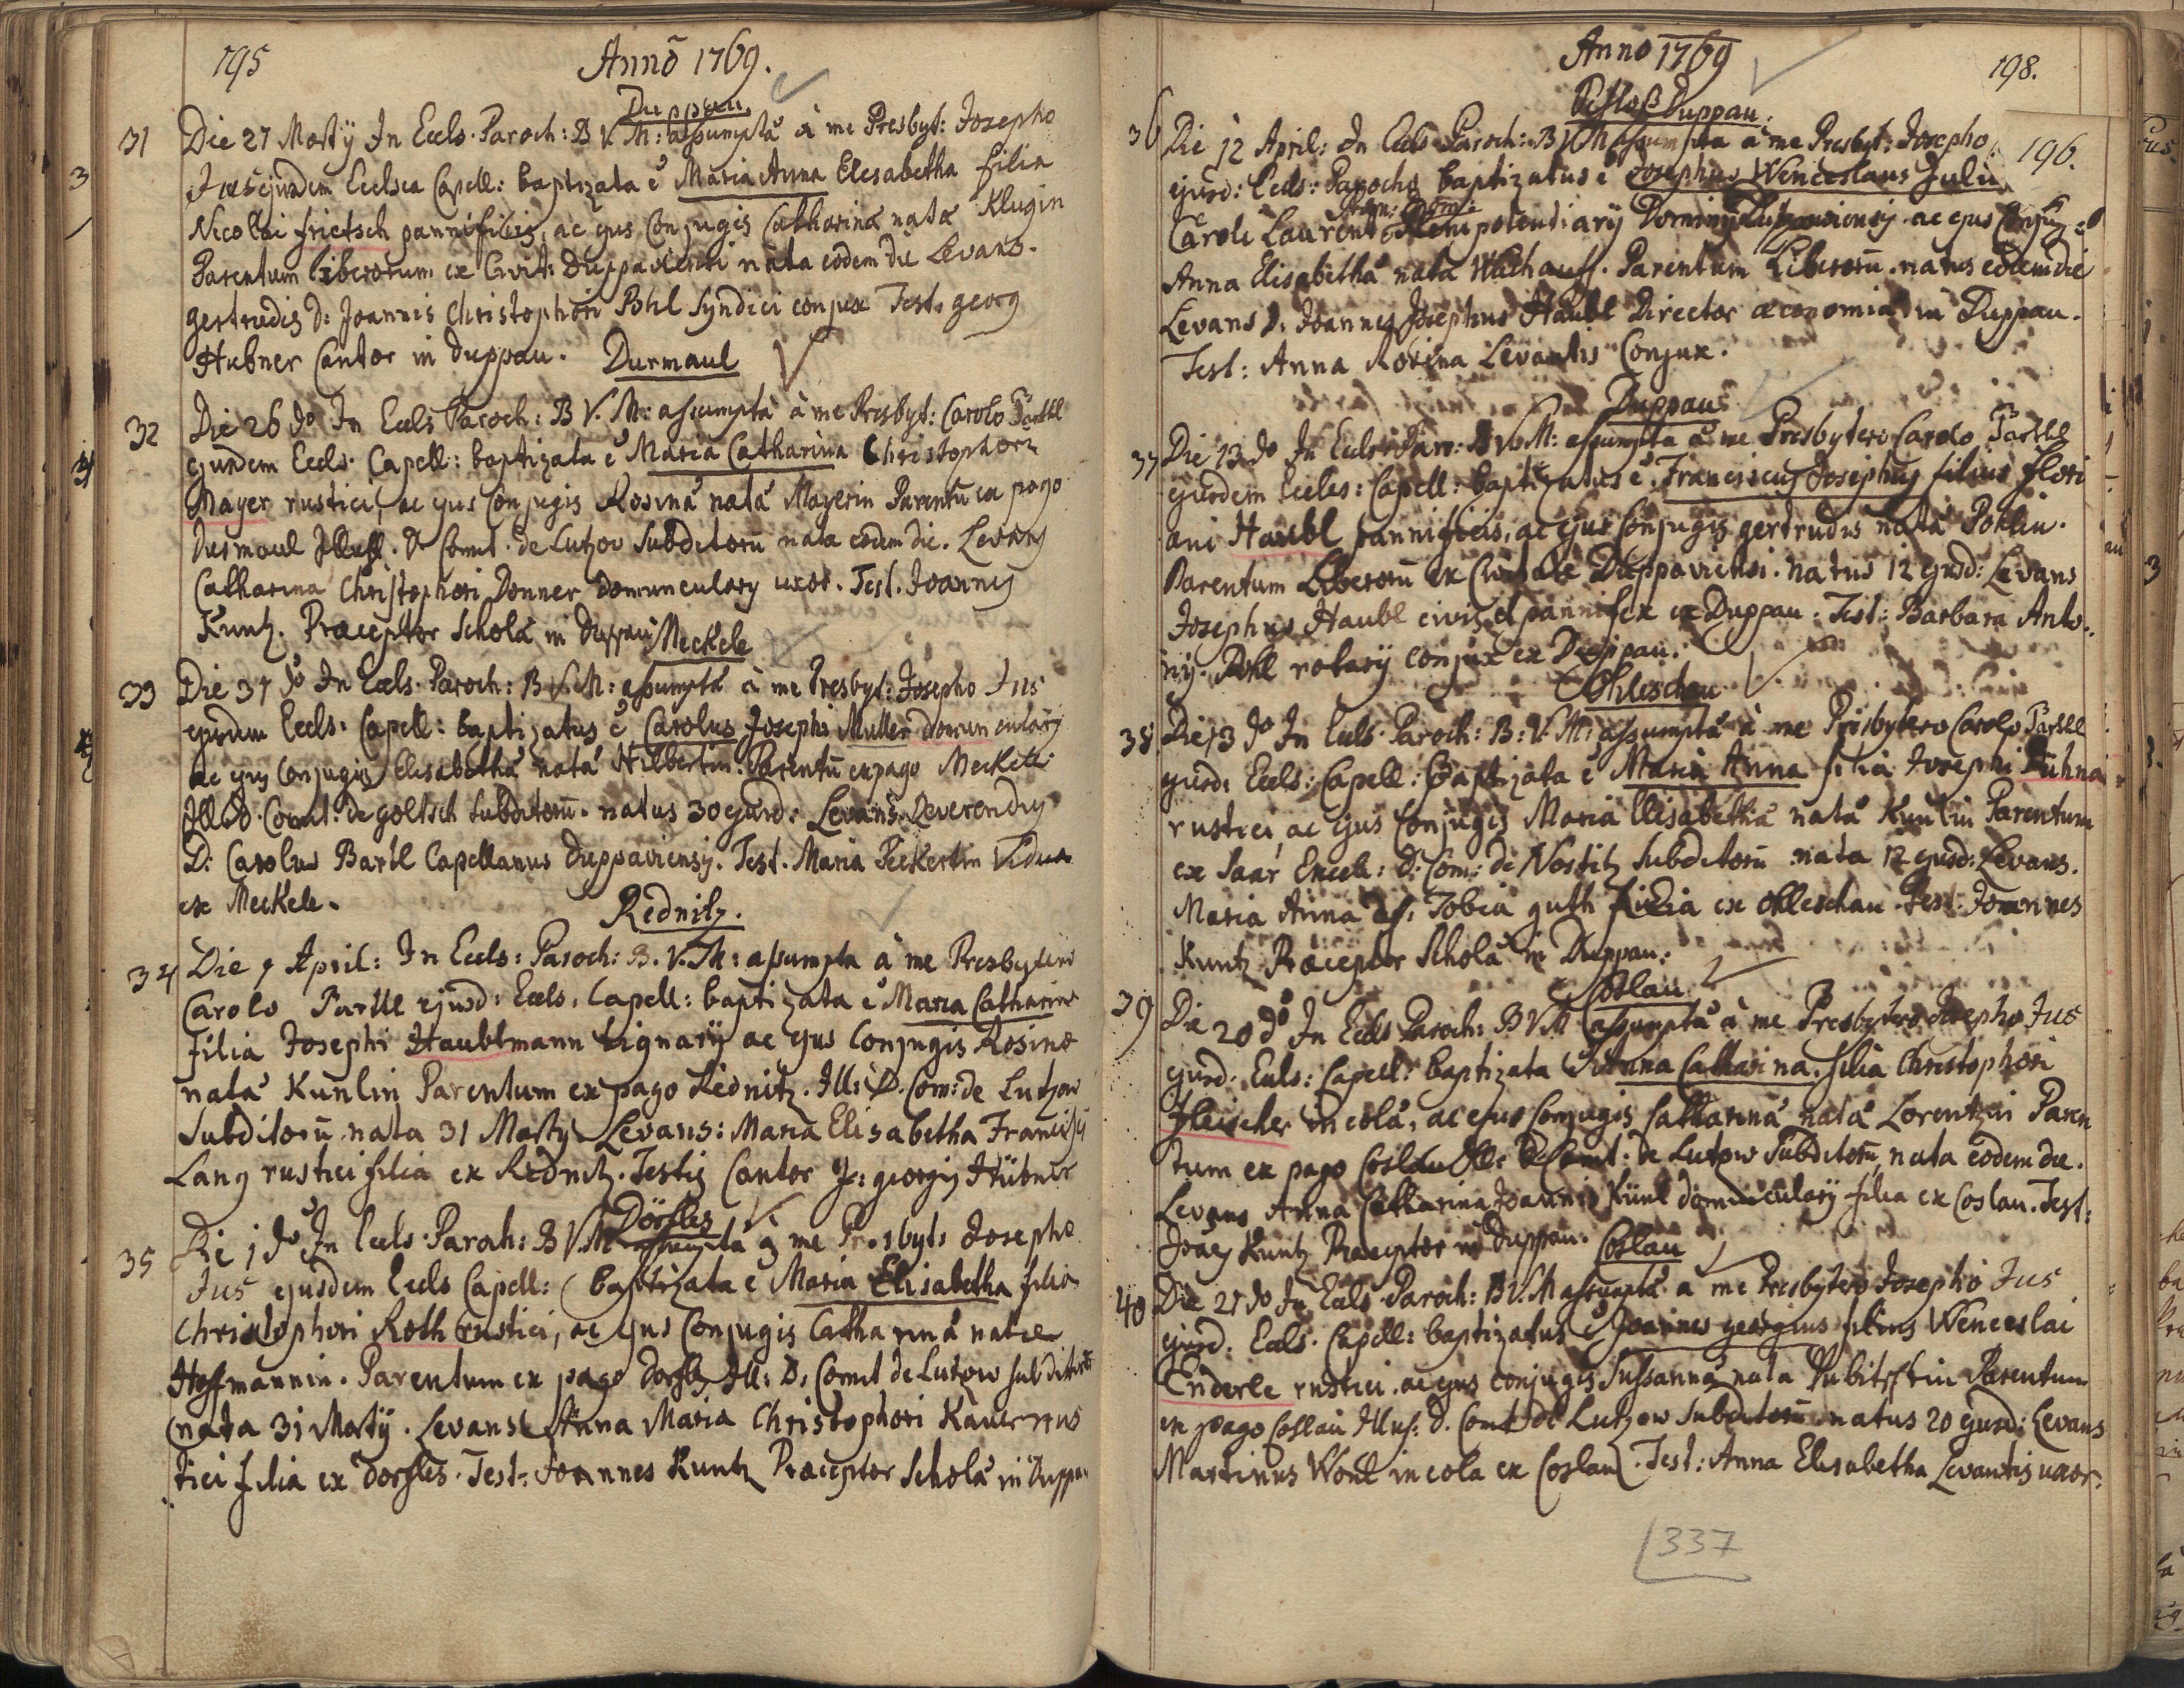 195
Anno 1769.
Duppau.
31 Die 27 Martÿ In Eccls. Paroch: B V. M: assumpta à me Presbyt: Josepho
Jus ejusdem Ecclsea Capell: baptizata ē Maria Anna Elesabetha filia
Nicolai frietsch pannificis, ac ejus Conjugis Catharina nata Klugin
Parentum liberorum ex Civit: Duppaviensi nata eodem die Levans.
gertrudis D: Joannis Christophori Pohl Syndici conjux Test. georg
Hubner Cantor in duppau.
Durmaul
32 Die 26 do In Eccls Paroch: B V. M: assumpta à me Presbyt: Carolo Partll
ejusdem Eccls. Capell: baptizata ē Maria Catharina Christophori
Mayer rustici, ac ejus Conjugis Rosina nata Mayerin Parentū ex pago
Durmaul Illusst. D Comit. de Lutzov Subditorū nata eodem die. Levans
Catharina Christophori Donner domuncularÿ uxor. Test. Joannis
Kuntz. Praeceptor Schola in Duppau
Meckele
33 Die 31 do In Eccls. Paroch: B V. M: assumpta à me Presbyt: Josepho Jus
ejusdem Eccls: Capell: baptizatus ē Carolus Josephi Muller domuncularÿ
ac ejus Conjugis Elisabetha nata Hilbertin. Parentū ex pago Meckelle
Ill. D. Comit: de goltsch Subditorū. natus 30 ejusd: Levans. Reverendus
D: Carolus Bartl Capellanus duppaviensis. Test. Maria Peckertin Vidua
ex Meckele.
Rednitz.
34 Die 1 April: In Eccls: Paroch: B. V. M: assumpta à me Presbytero
Carolo Partll ejusd: Eccls: Capell: baptizata ē Maria Catharina
filia Josephi Haublmann Lignarÿ ac ejus Conjugis Rosina
nata Kunlin Parentum ex pago Rednitz. Ill: D. Com: de Lutzow
Subditorū. nata 31 Martÿ. Levans: Maria Elisabetha Francisci
Lang rustici filia ex Rednitz. Testis Cantor J: georgis Hübner
Dörfles
35 Die 1 do In Eccls. Paroch: B V. M assumpta à me Presbyt: Josepho
Jus ejusdem Eccls Capell: baptizata e Maria Elisabetha filia
Christophori Roth rustici, ac ejus Conjugis Catharina natae
Hoffmannin. Parentum ex pago Dorfls Ill: D: Comit de Lutzow subditorū
nata 31 Martÿ. Levans Anna Maria Christophori Kauer rus
tici filia ex Dorfles. Test: Joannes Kuntz Praeceptor Schola in Duppau
Anno 1769
198.
196.
Schloß Duppau.
36 Die 12 April: In Eccls Paroch: B V M assumpta à me Presbyt: Josepho
ejusd: Eccls: Parocho baptizatus ē Josephus Wenceslaus Juliu
Caroli Laurent Plenipotentiarÿ Dominÿ Duppaviensis. ac ejus Conjugis
Anna Elisabetha nata Wachauss. Parentum Liberorū. natus eodem die
Levans D. Joannes Josephus Haubl Director œconomia in Duppau.
Test: Anna Rosina Levantis Conjux.
Duppau
37 Die 13 do In Eccls: Paro: B V. M: assumpta à me Presbytero Carolo Partll
ejusdem Eccles: Capell: baptizatus ē Franciscus Josephus filius flori
ani Haubl pannificis, ac ejus Conjugis gertrudis nata Pohlin.
Parentum Liberorū ex Civitate Duppaviensi. natus 12 ejusd: Levans
Josephus Haubl civis et pannifex ex Duppau: Test: Barbara Anto:
nÿ. Pohl notarÿ conjux ex Duppau.
Ohleschau
38 Die 13 do In Eccls. Paroch: B: V. M: assumpta à me Presbytero Carolo Partll
ejusd: Eccls: Capell: Baptizata ē Maria Anna filia Josephi Kuhna
rustici, ac ejus Conjugis Maria Elisabetha nata Kunlin Parentum
ex Saar Excell: D: Com: de Nostitz Subditorū nata 12 ejusd: Levans.
Maria Anna Tobia guth filia ex ohleschau. Test: Joannes
Kuntz Praeceptor Schola in Duppau.
Coslau
39 Die 20 do In Eccls Paroch: B V M assumpta à me Presbytero Josepho Jus
ejusd: Eccls: Capell: baptizata ē Anna Catharina. filia Christophori
Fleischer incola, ac ejus Conjugis Catharina nata Lorentzin Paren
tum ex pago Coslau Ill: D Comit: de Lutzow Subditorū, nata eodem die.
Levans Anna Catharina Joannis Künl domuncularÿ filia ex Coslau. Test:
Joaes Kuntz Praeceptor in Duppau.
Coslau
40 Die 21 do In Eccls Paroch: B V. M assumpta à me Presbytero Josepho Jus
ejusd: Eccls. Capell: baptizatus ē Joannes georgius filius Wenceslai
Enderle rustici. ac ejus conjugis Sussanna nata Parentum
ex pago Coslau Illus: D. Comit de Lutzow Subditorū natus 20 ejusd: Levans
Martinus Wohl incola ex Coslau. Test: Anna Elisabetha Levantis uxor.
337